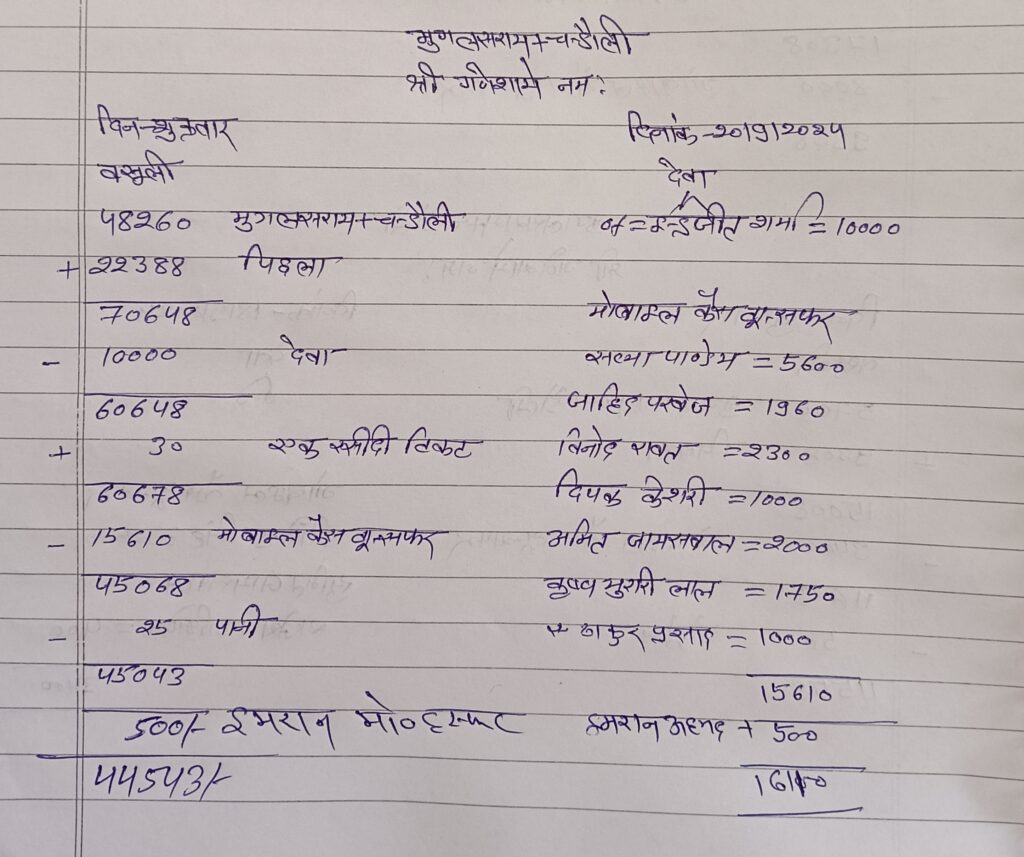 मुगलसराय+चन्डौली
श्री गणेशाये नम:
दिन-शुक्रवार
दिनांक-20/9/2024
वसुली
देवा
48260 मुगलसराय+चन्डौली
= इन्द्रजीत शर्मा = 10000
+ 22388 पिछला
70648
मोबाइल कैस ट्रान्सफर
- 10000 देवा
सत्या पाण्डेय = 5600
60648
जाहिद परवेज = 1960
+ 30 एक रसीदी टिकट
विनोद रावत = 2300
60678
दिपक केशरी = 1000
- 15610 मोबाइल कैस ट्रान्सफर
अमित जायसवाल = 2000
45068
कृष्ण मुरारी लाल = 1750
- 25 पानी
ठाकुर प्रसाद = 1000
45043
15610
500/- इमरान मो०
इमरान अहमद + 500
44543/-
16110